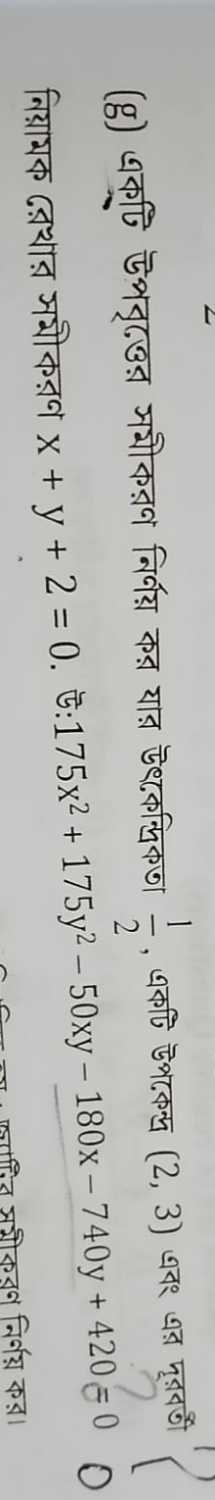 (g) একটি উপবৃত্তের সমীকরণ নির্ণয় কর যার উৎকেন্দ্রিকতা 1/2, একটি উপকেন্দ্র (2, 3) এবং এর দূরবর্তী
নিয়ামক রেখার সমীকরণ x + y + 2 = 0. উ:175x² + 175y² − 50xy − 180x − 740y + 420 = 0
সমীকরণ নির্ণয় কর।